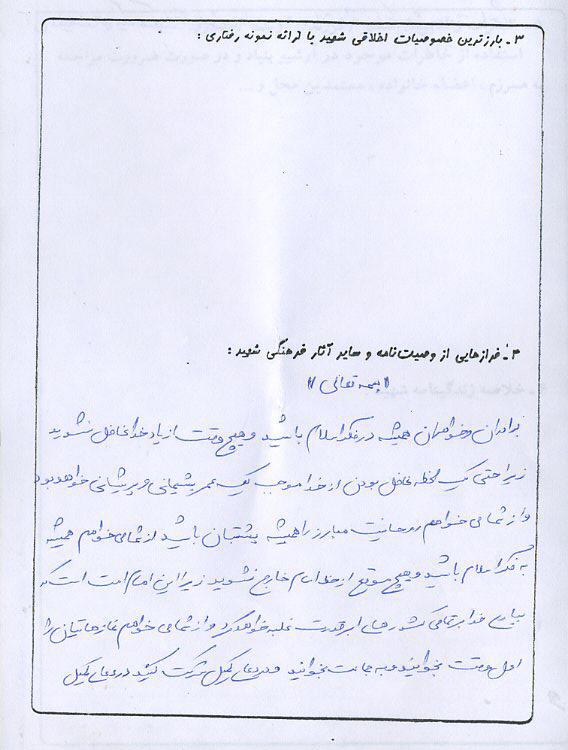 ۳ـ بارزترین خصوصیات اخلاقی شهید با ارائه نمونه رفتاری :
۴ـ فرازهایی از وصیت‌نامه و سایر آثار فرهنگی شهید :
«بسمه تعالی»
برادران و خواهران همیشه در فکر اسلام باشید و هیچ وقت از یاد خدا غافل نشوید
زیرا حتی یک لحظه غافل بودن از خدا موجب یک عمر پشیمانی و پریشانی خواهد بود
و از شما می خواهم روحانیت مبارز را همیشه پشتیبان باشید از شما می خواهم همیشه
به فکر اسلام باشید و هیچ موقع از خط امام خارج نشوید زیرا این امام امت است که
بیاری خدا بر تمامی کشورهای ابرقدرت غلبه خواهد کرد و از شما می خواهم نمازهایتان را
اول وقت بخوانید و به جماعت بخوانید و در دعای کمیل شرکت کنید در دعای کمیل